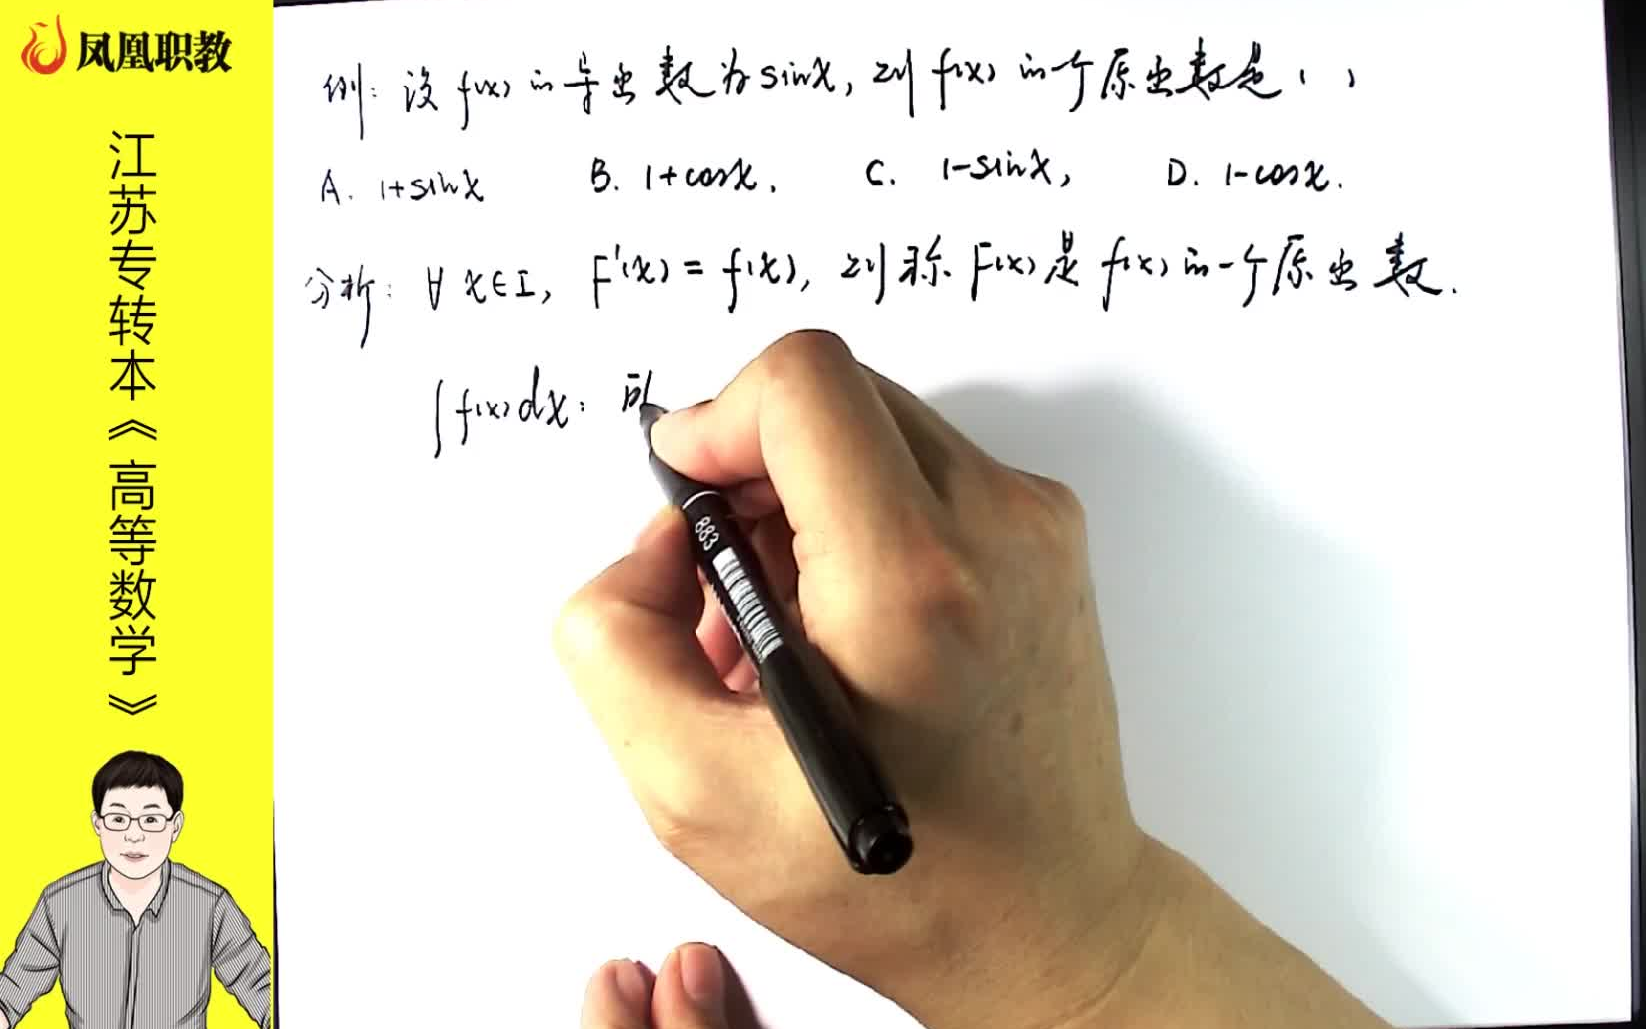 凤凰职教
江苏专转本《高等数学》
例：设 f(x) 的导函数为 sinx, 则 f(x) 的一个原函数是（ ）
A. 1+sinx B. 1+cosx, C. 1-sinx, D. 1-cosx.
分析：∀ x∈I, F'(x) = f(x), 则称 F(x) 是 f(x) 的一个原函数.
∫f(x)dx：
883